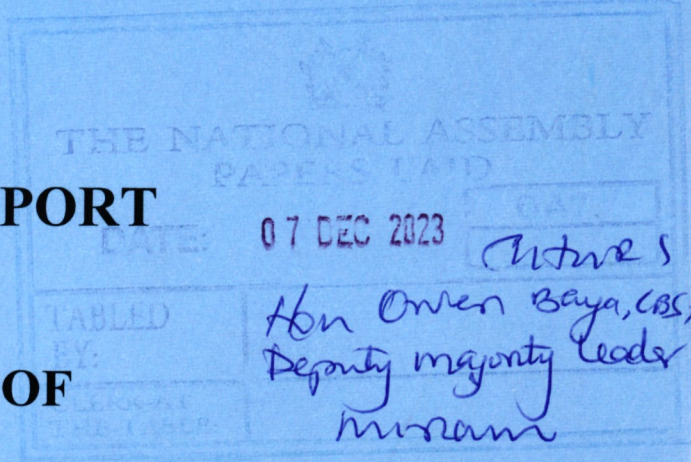 THE NATIONAL ASSEMBLY
PAPERS LAID
PORT
DATE: 07 DEC 2023
DAY.
TABLED
BY:
Hon Owen Baya, CBS,
Deputy majority leader
OF
CLERK-AT
THE-TABLE:
Miriam